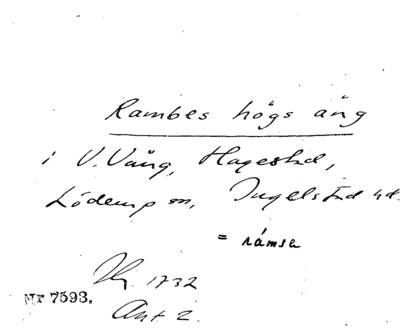 Rambes högs äng
i V. Vång, Hagestad,
Löderup sn, Ingelstad hd.
= rámsa
1732
Nr 7593.
Akt 2.